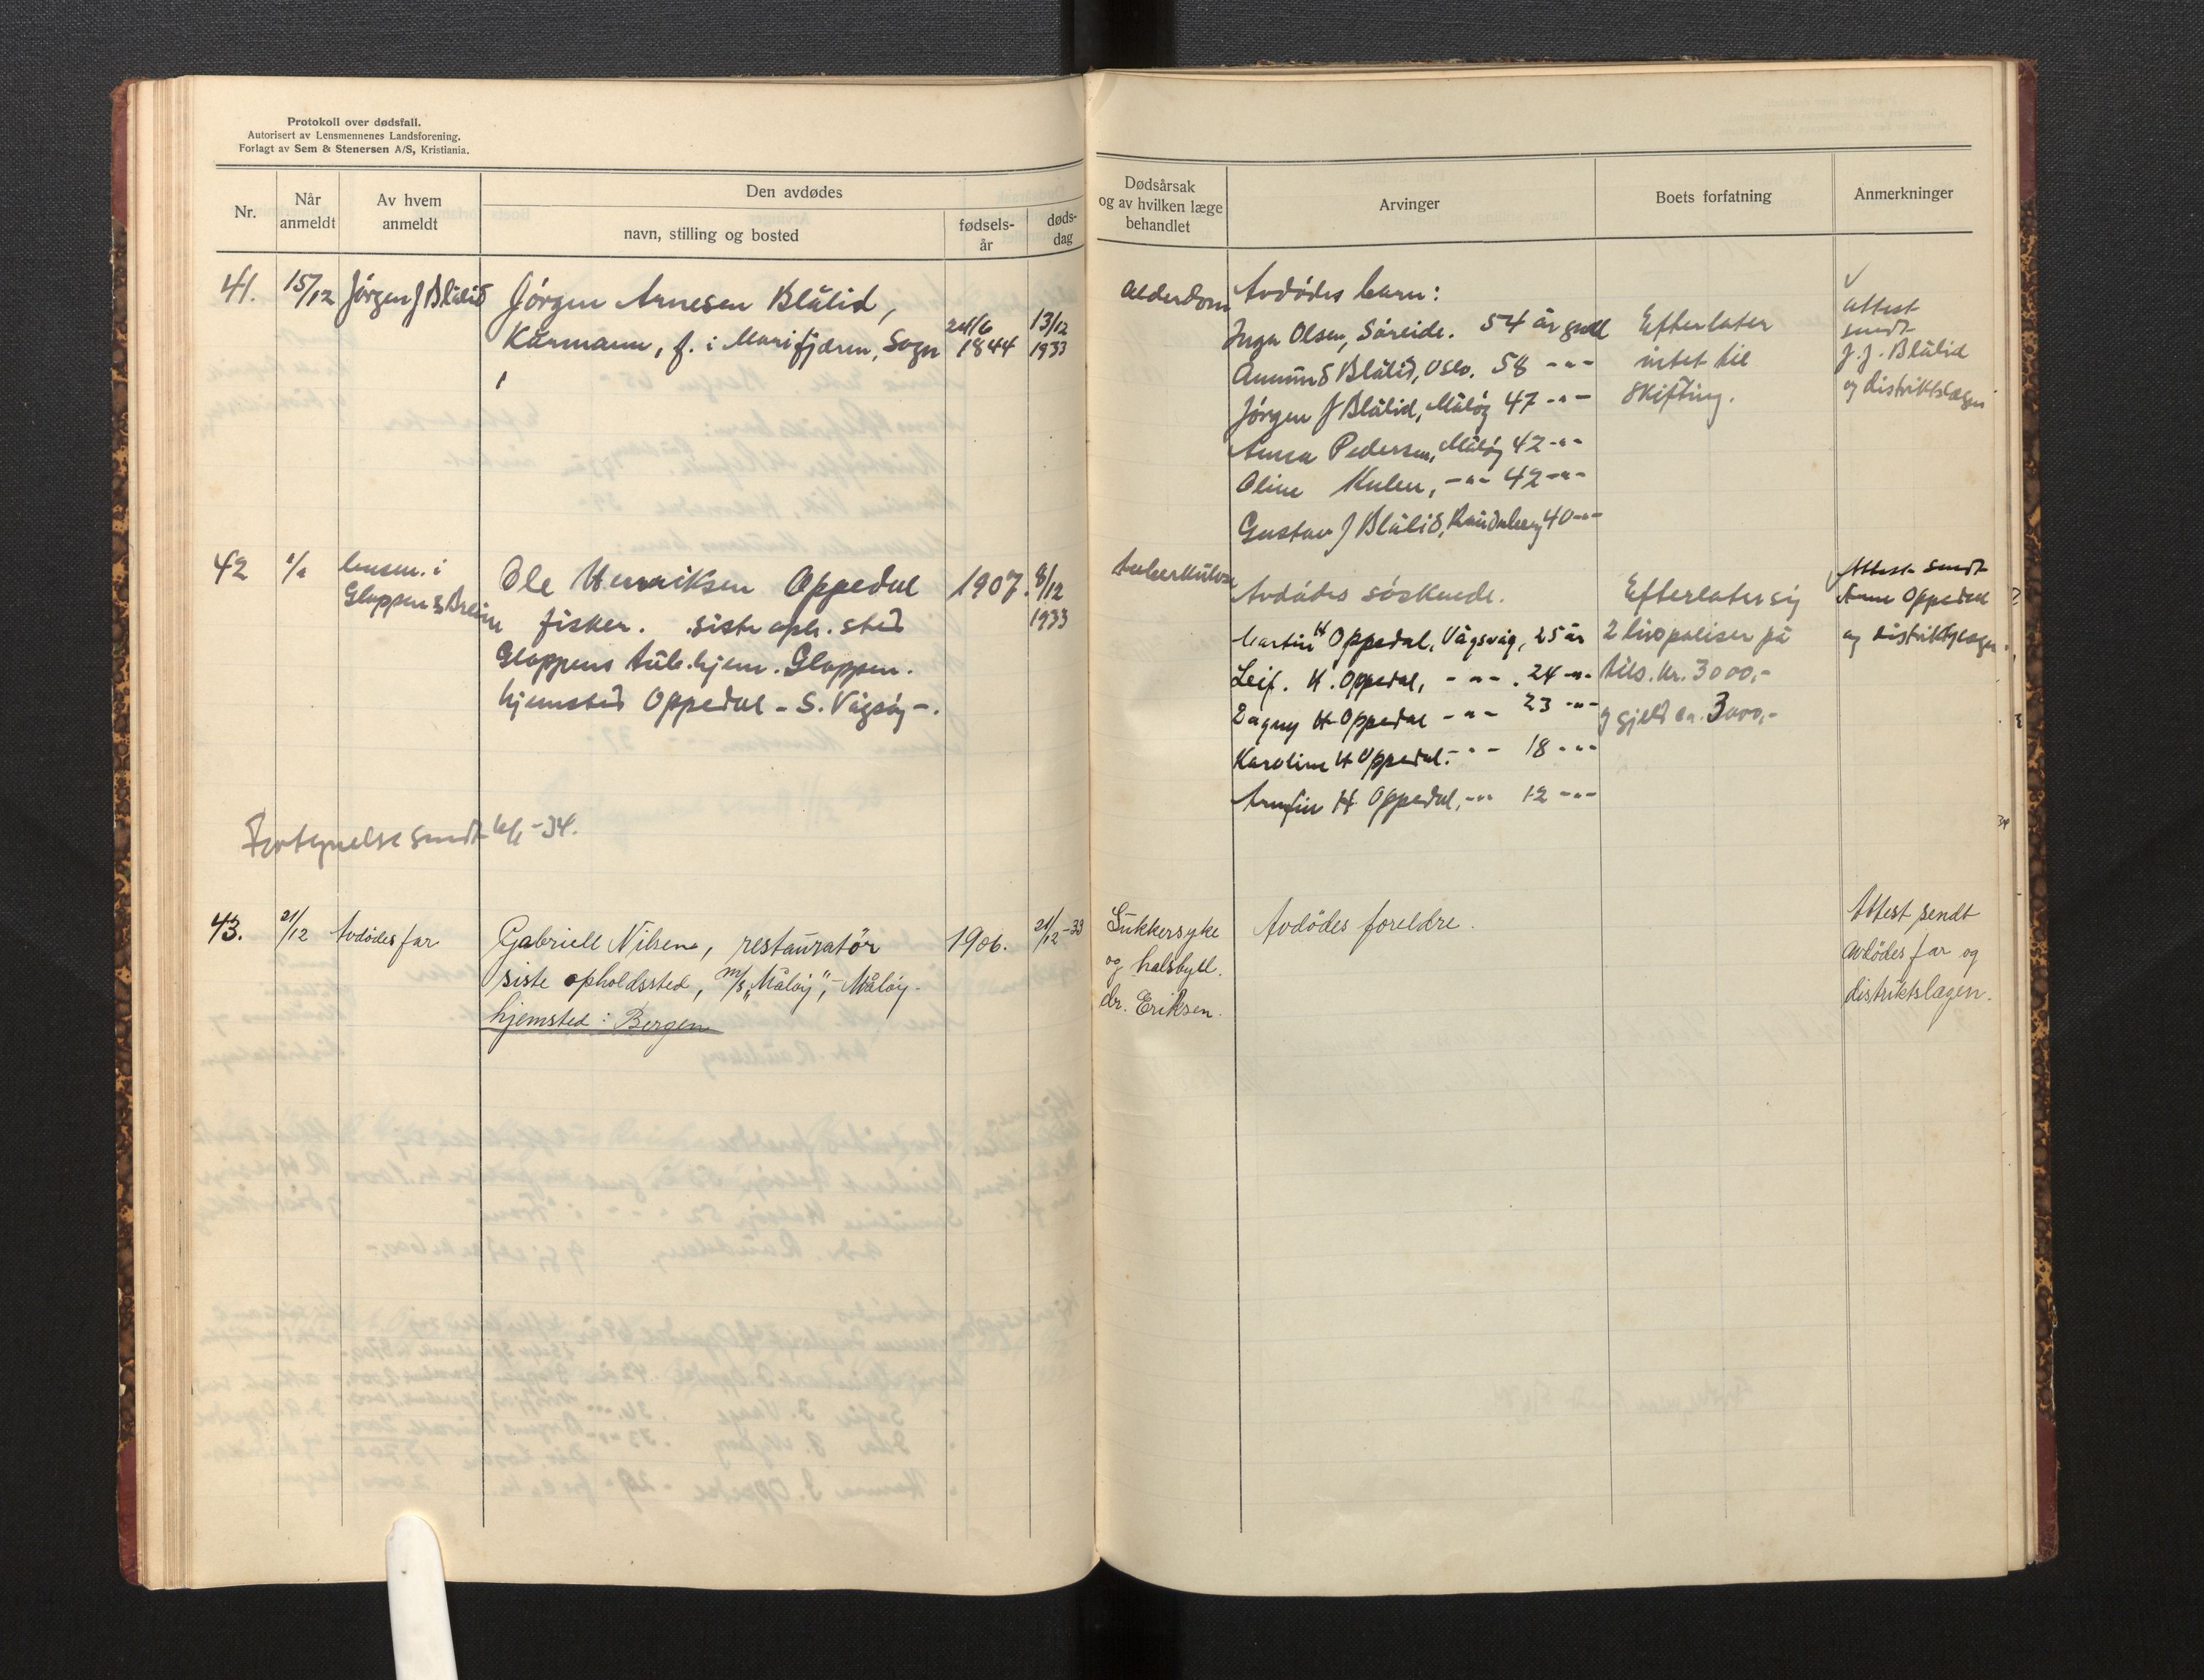 Protokoll over dødsfall.
Autorisert av Lensmennenes Landsforening.
Forlagt av Sem & Stenersen A/S, Kristiania.
Nr.
Når anmeldt
Av hvem anmeldt
Den avdødes
navn, stilling og bosted
fødsels-
år
døds-
dag
Dødsårsak
og av hvilken læge
behandlet
Arvinger
Boets forfatning
Anmerkninger
41. 15/12 Jörgen J Blålid
Jörgen Arnesen Blålid,
Kårmann, f. i Marifjæren, Sogn
24/6
1844
13/12
1933
Alderdom
Avdödes barn:
Inga Olsen, Söreide. 54 år gml
Amund Blålid, Oslo. 58 -"-
Jörgen J Blålid, Måløy 47 -"-
Anna Pedersen, Måløy 42 -"-
Oline -"- 42 -"-
Gustav J Blålid, Raudeberg 40 -"-
Efterlater
intet til
skifting.
attest
sendt
J. J. Blålid
og distriktslægen
42
lensm. i
Gloppen & Breim
Ole Henriksen Oppedal
fisker. siste oph. sted
Gloppens tub.hjem. Gloppen.
hjemsted Oppedal - S. Vågsøy -.
1907.
8/12
1933
Tuberkulose
Avdödes söskende.
Martin H Oppedal, Vågsvåg, 25 år
Leif. H. Oppedal, -"-. 24 -"-
Dagny H Oppedal -"- 23 -"-
Karoline H Oppedal. -"- 18 -"-
Arnfin H Oppedal, -"- 12 -"-
Efterlater sig
2 livspoliser på
tils. kr. 3000,-
og gjeld ca. 3000,-
Attest sendt
Oppedal
og distriktslægen.
sendt -34.
43. 21/12 Avdödes far
Gabriell Nilsen, restauratör
siste opholdssted, m/s "Måløy", - Måløy.
hjemsted: Bergen
1906.
21/12-33
Sukkersyke
og halsbyll.
dr. Eriksen.
Avdödes foreldre.
Attest sendt
avdödes far og
distriktslægen.